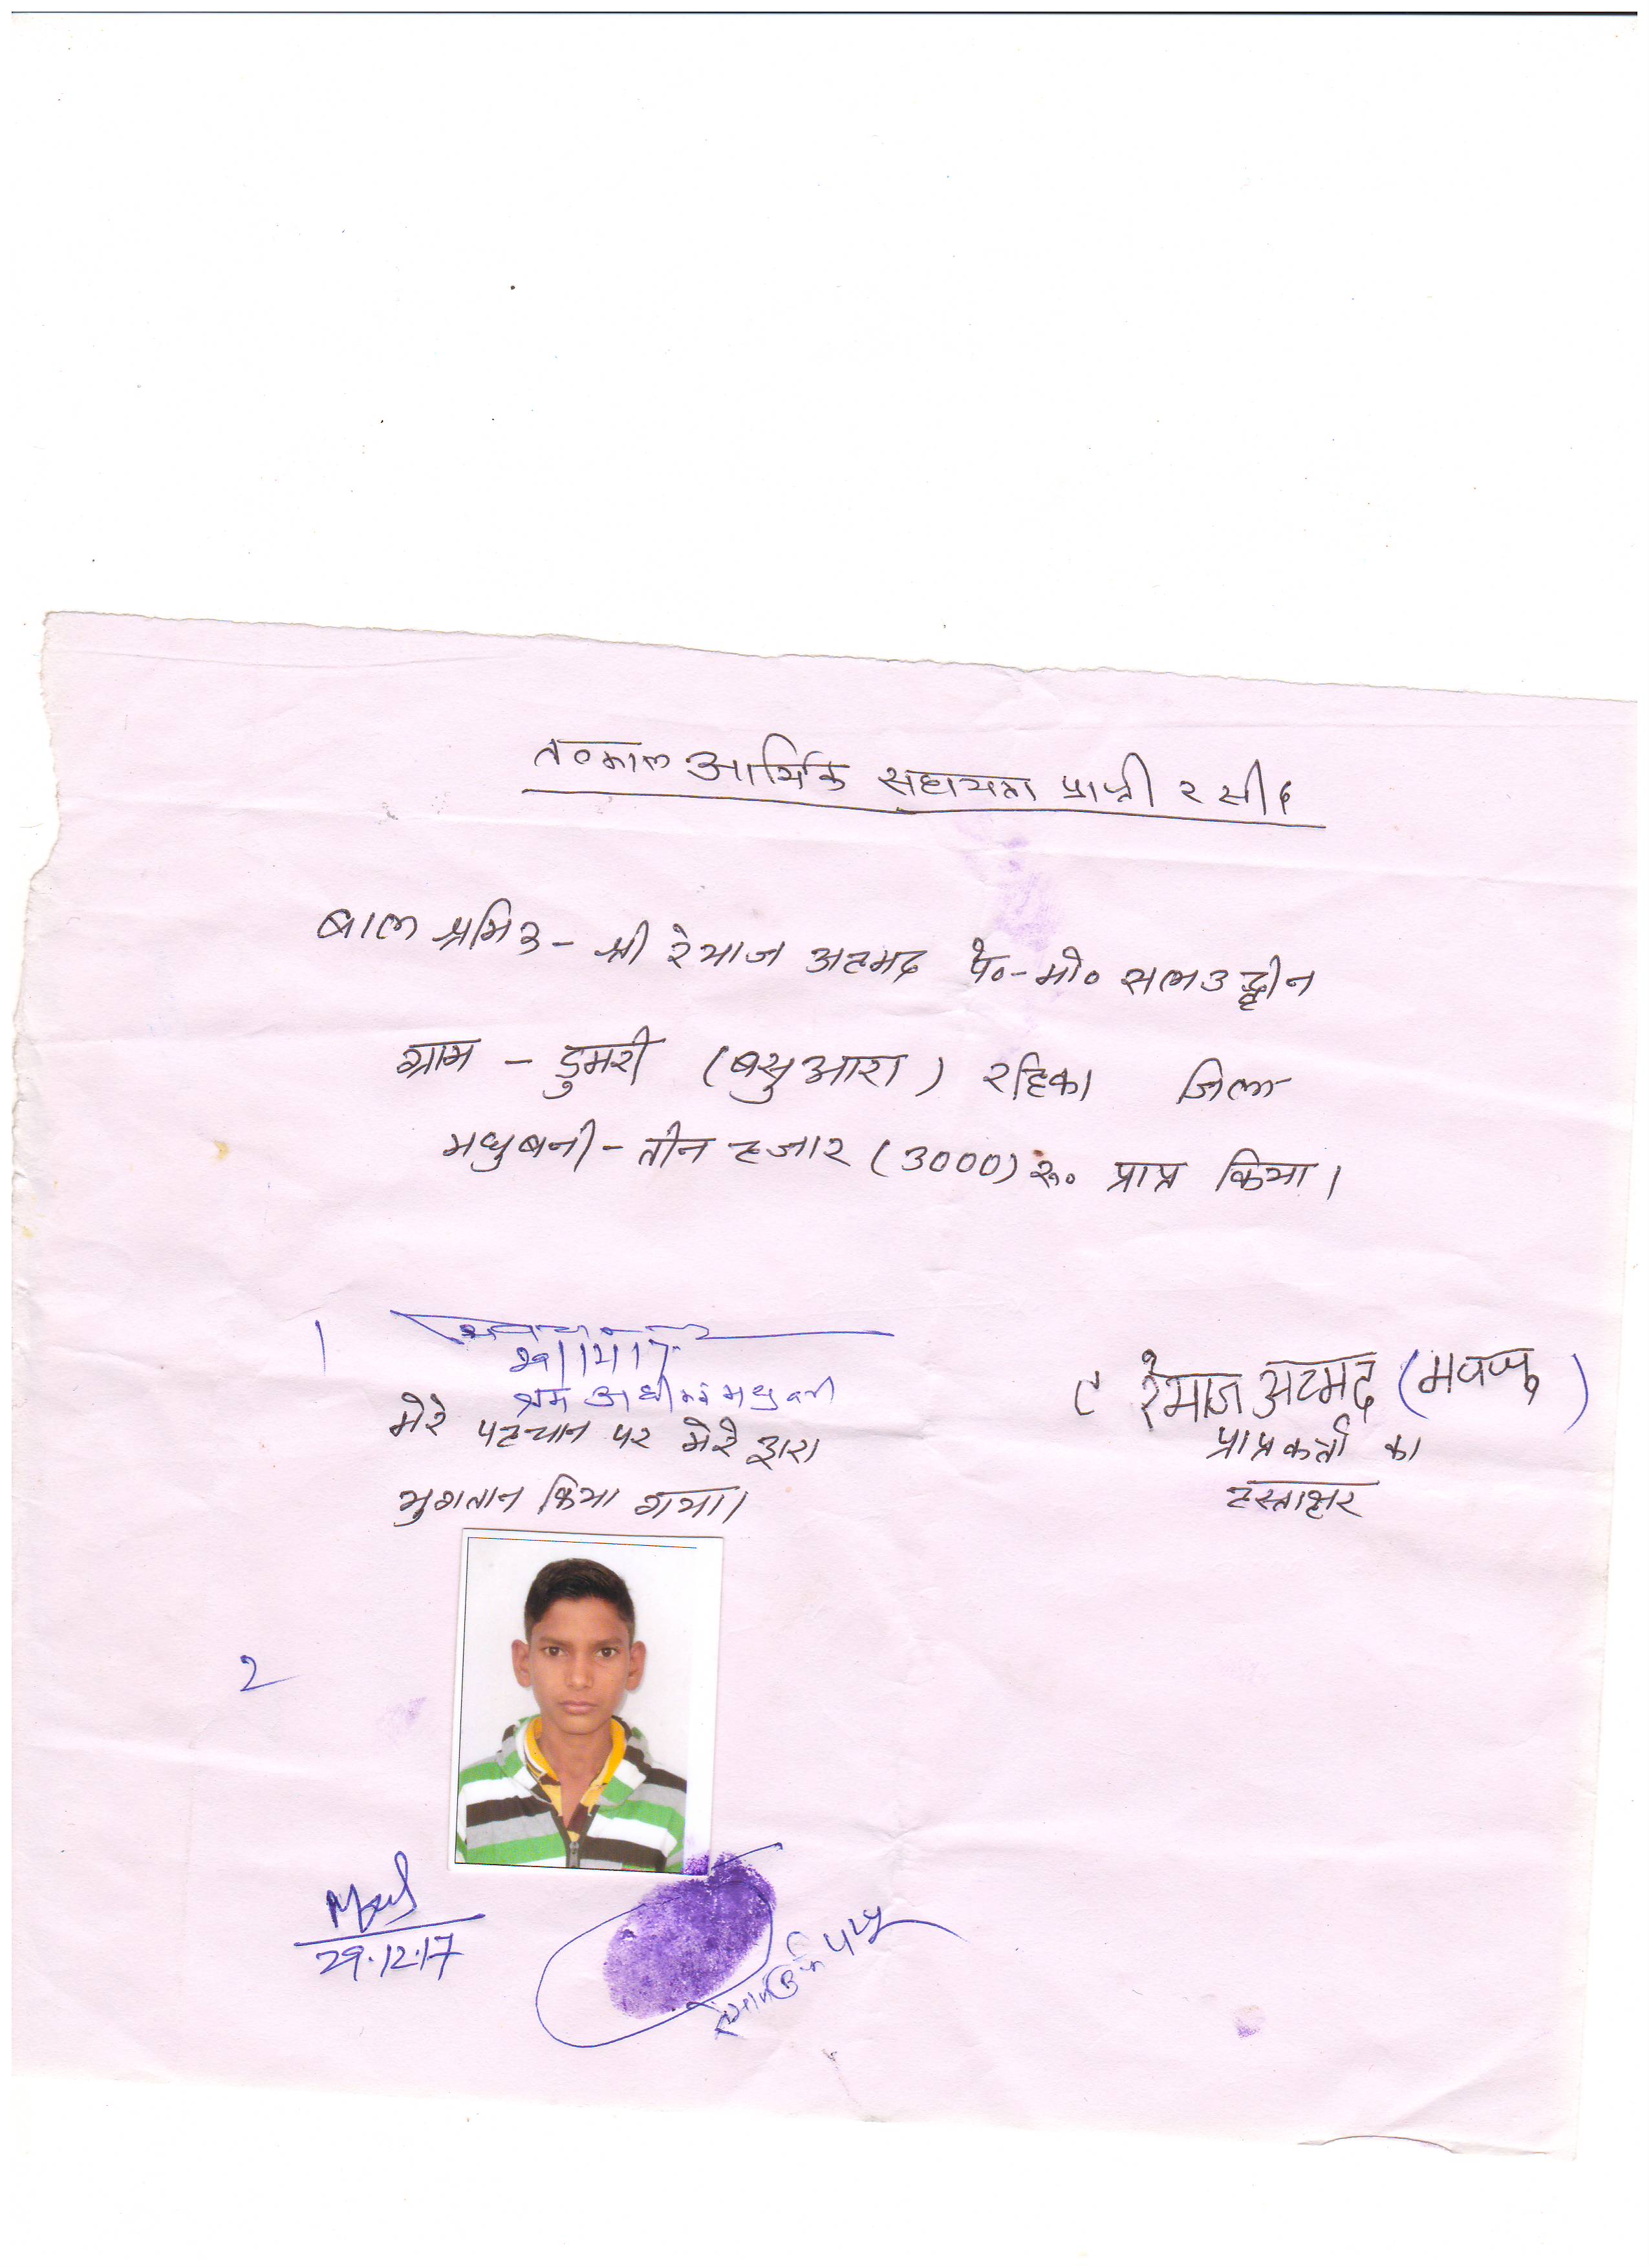 तत्काल आर्थिक सहायता प्राप्ती रसीद
बाल श्रमिक - श्री रेयाज अहमद पे०-मो० सलाउद्दीन
ग्राम - डुमरी (बसुआरा) रहिका जिला
मधुबनी - तीन हजार (3000) रू० प्राप्त किया।
1
29/12/17
श्रम अधीक्षक मधुबनी
मेरे पहचान पर मेरे द्वारा
भुगतान किया गया।
रेयाज अहमद
प्राप्तकर्ता का
हस्ताक्षर
2
29.12.17